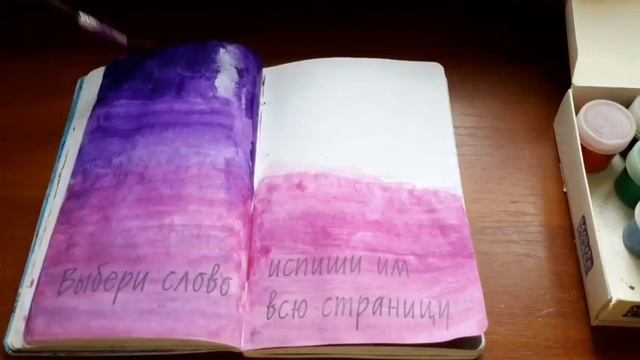 Выбери слово
испиши им
всю страницу